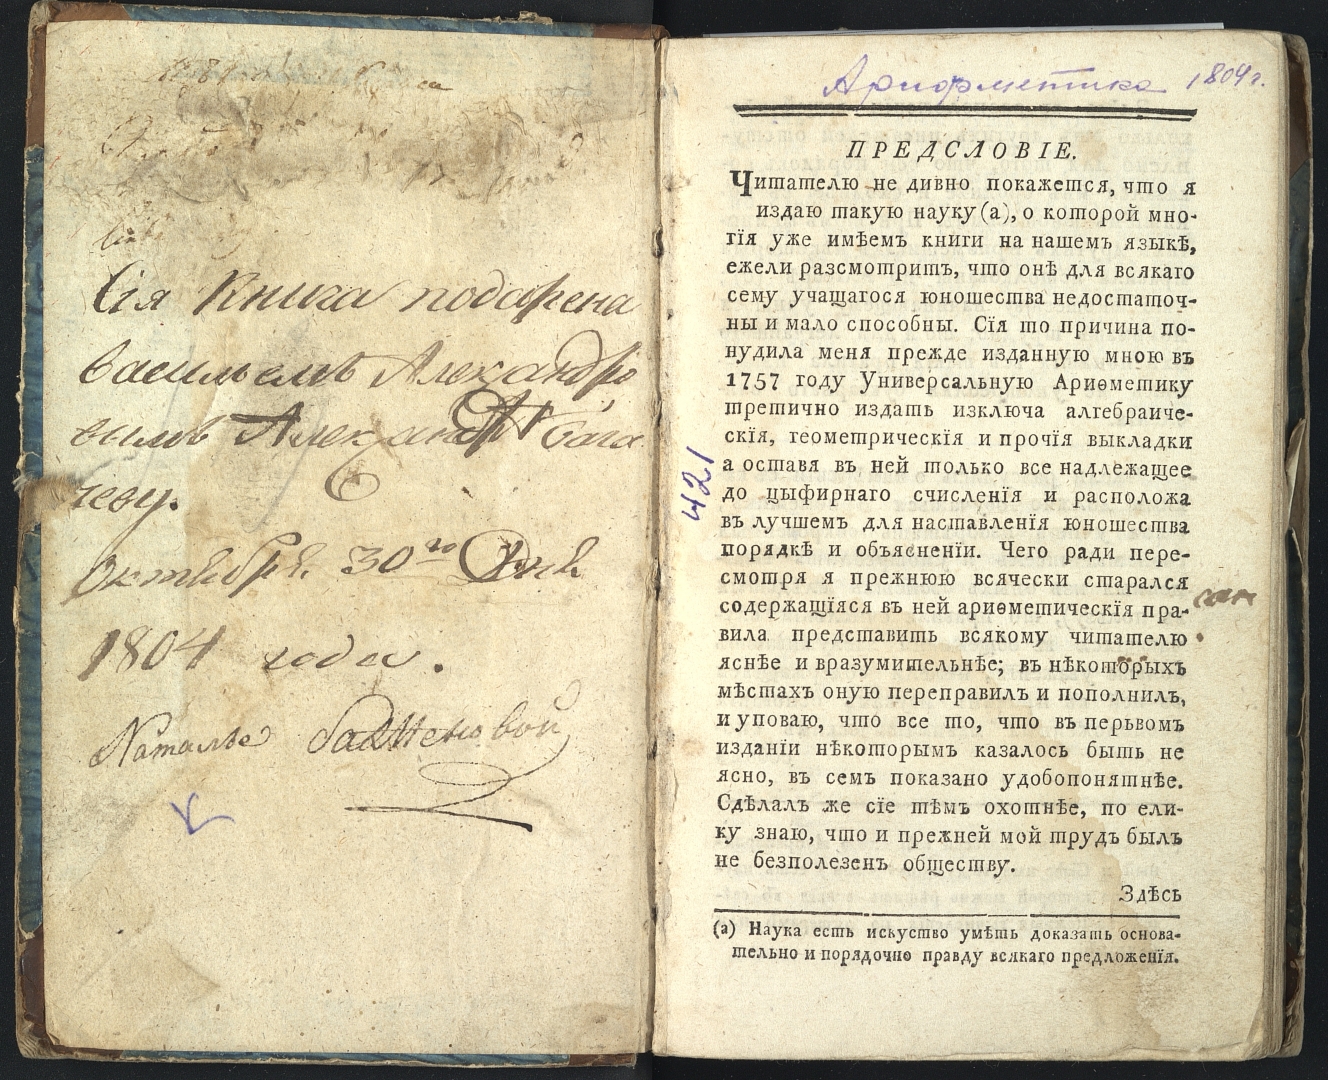 Сія Книга подарена
васильемъ Александро
вичемъ
чеву.
Октября. 30го Дня
1804 года.
Наталье баженовой
Арифметика 1804 г.
ПРЕДСЛОВІЕ.
Читателю не дивно покажется, что я
издаю такую науку (а), о которой мно-
гія уже имѣемъ книги на нашемъ языкѣ,
ежели разсмотритъ, что онѣ для всякаго
сему учащагося юношества недостаточ-
ны и мало способны. Сія то причина по-
нудила меня прежде изданную мною въ
1757 году Универсальную Ариѳметику
третично издать изключа алгебраиче-
скія, геометрическія и прочія выкладки
а оставя въ ней только все надлежащее
до цыфирнаго счисленія и расположа
въ лучшемъ для наставленія юношества
порядкѣ и объясненіи. Чего ради пере-
смотря я прежнюю всячески старался
содержащіяся въ ней ариѳметическія пра-
вила представить всякому читателю
яснѣе и вразумительнѣе; въ нѣкоторыхъ
мѣстахъ оную переправилъ и пополнилъ,
и уповаю, что все то, что въ перьвомъ
изданіи нѣкоторымъ казалось быть не
ясно, въ семъ показано удобопонятнѣе.
Сдѣлалъ же сіе тѣмъ охотнѣе, по ели-
ку знаю, что и прежней мой трудъ былъ
не безполезенъ обществу.
Здѣсь
(а) Наука есть искуство умѣть доказать основа-
тельно и порядочно правду всякаго предложенія.
421